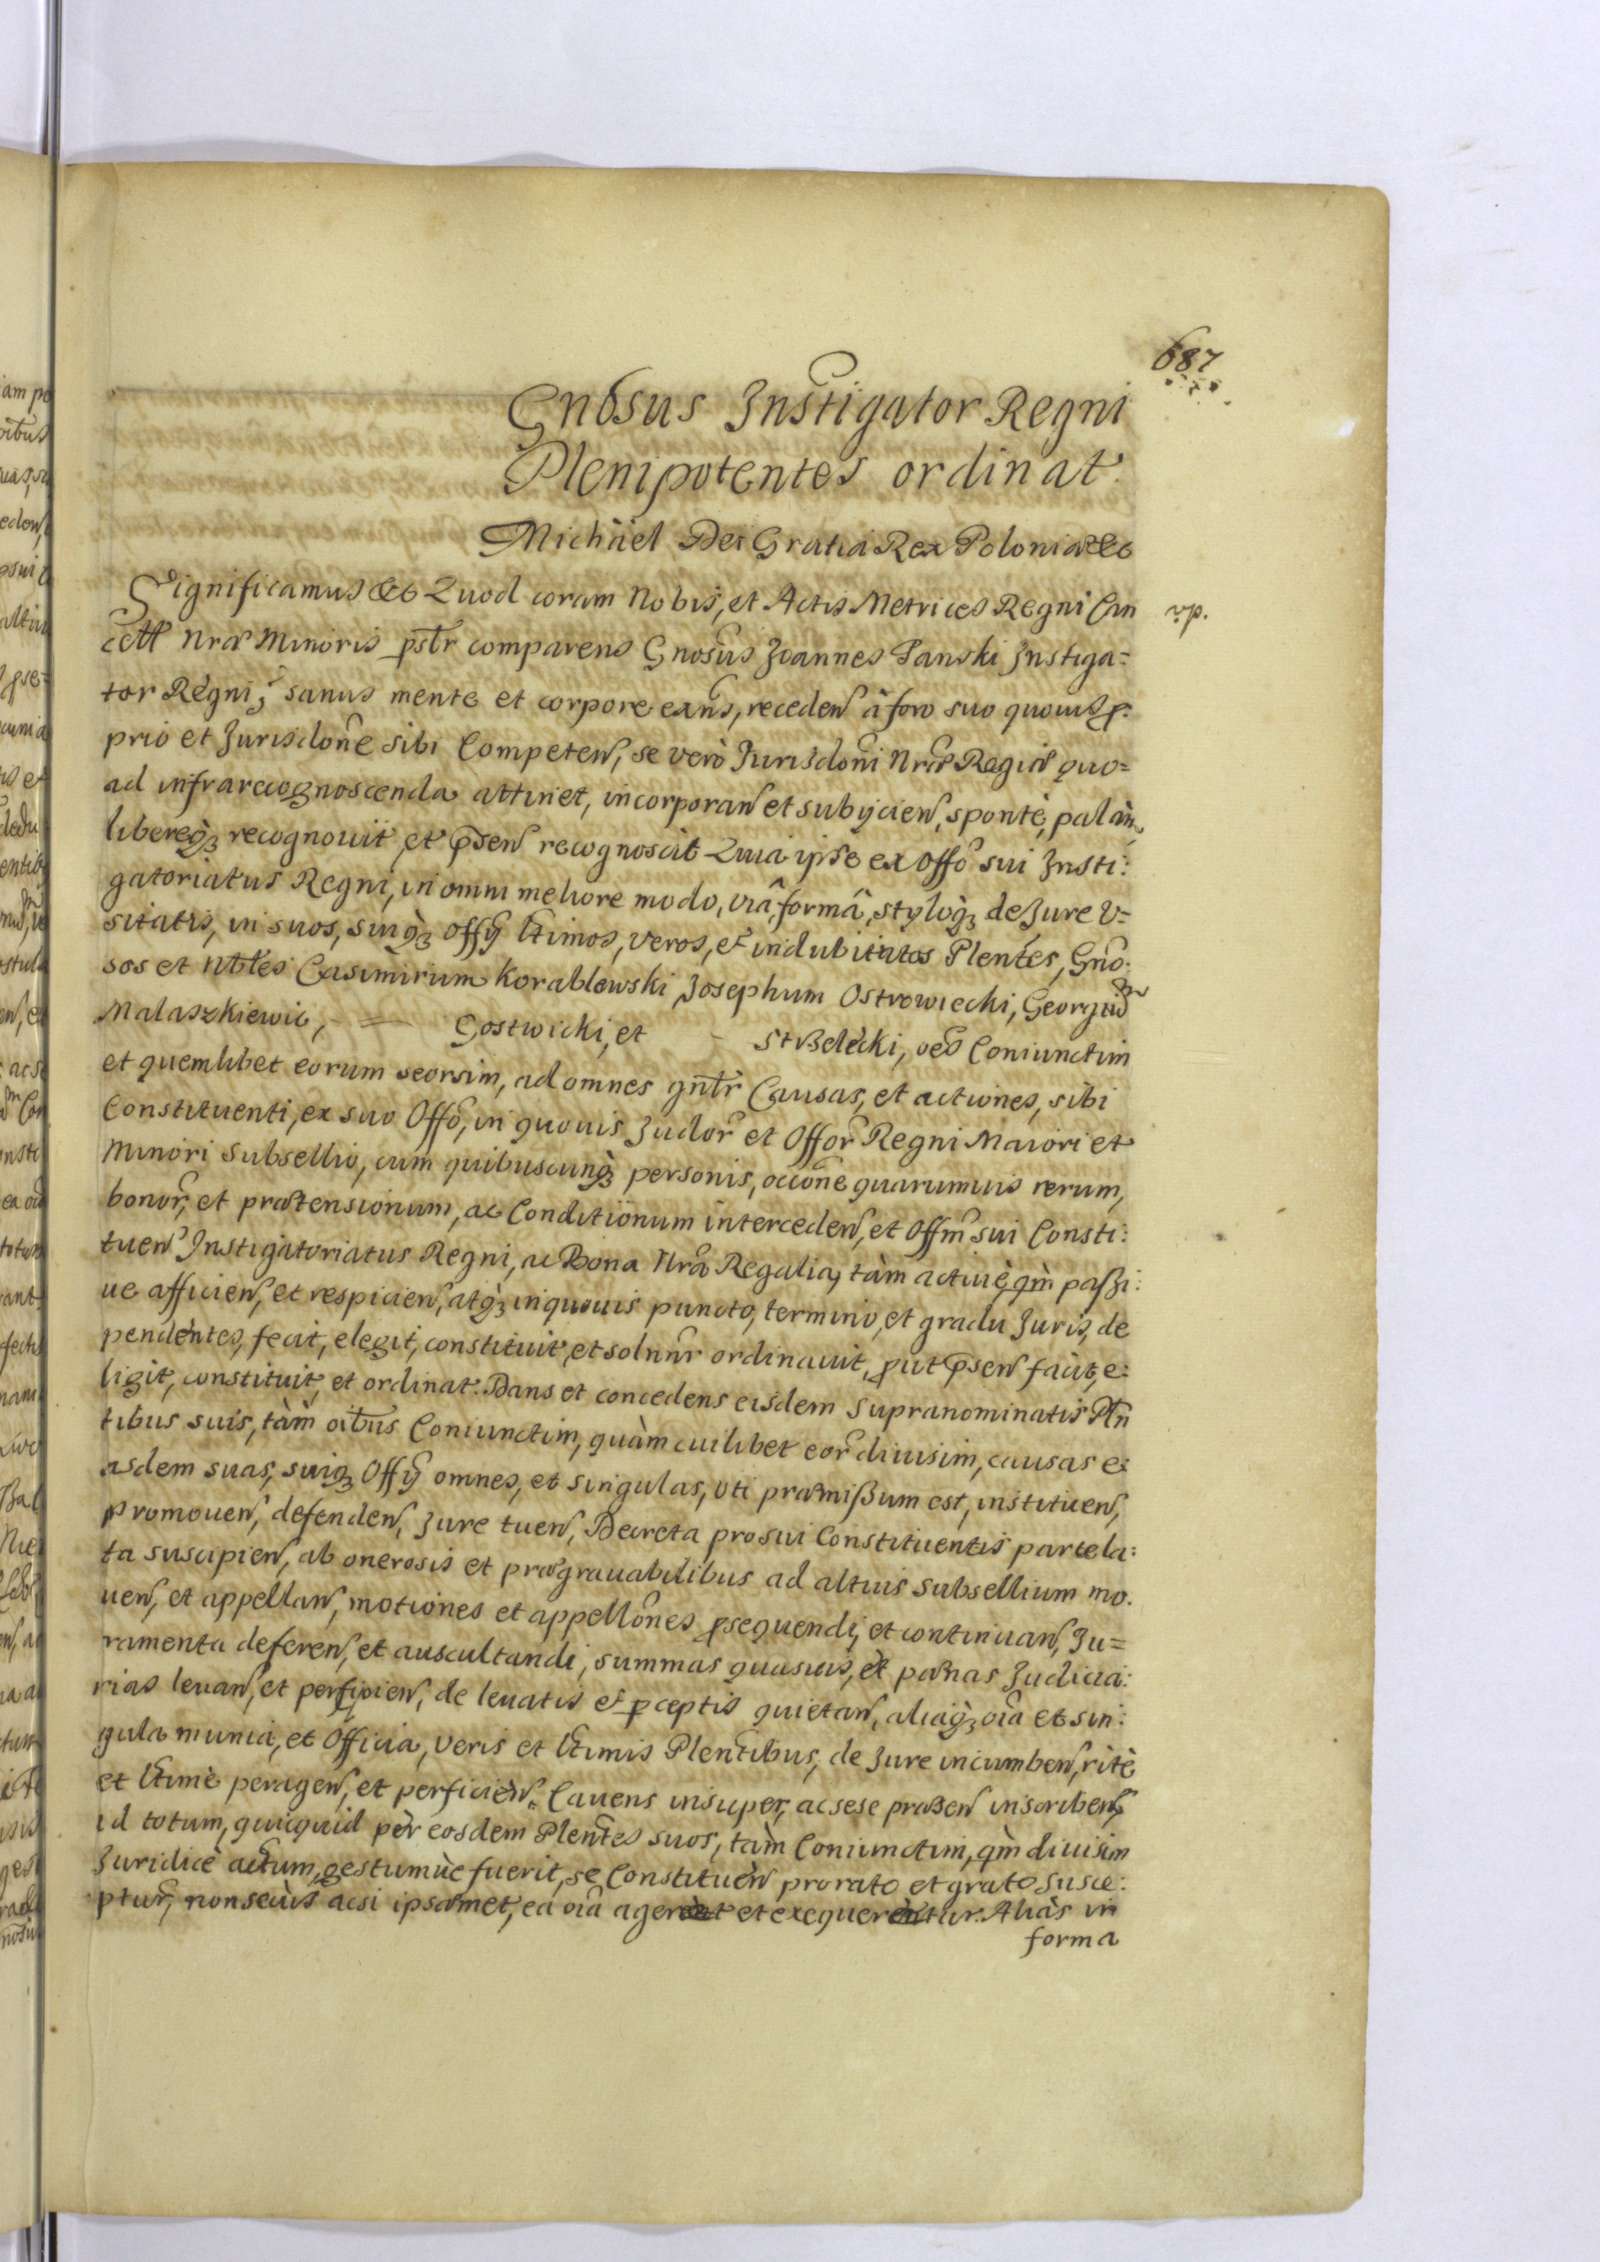 687
Gnosus Instigator Regni
Plenipotentes ordinat.
Michäel Dei Gratia Rex Poloniæ &c
Significamus &c Quod coram Nobis, et Actis Metrices Regni Can
vp.
cell Nræ Minoris pstr comparens Gnosus Joannes Tanski Instiga=
tor Regni, sanus mente et corpore exñs, receden à foro suo quouis p.
prio et Jurisdone sibi Competen, se verò Jurisdoni Nræ Regiæ quo=
ad infrarecognoscenda attinet, incorporan et subijcien, spontè, palàm,
libereqꝫ recognouit, et psen recognoscit Quia ipse ex offo sui Insti:
gatoriatus Regni, in omni meliore modo, viâ, formâ, styloqꝫ de Jure V=
sitatis, in suos, suiqꝫ offÿ ltimos, veros, et indubitatos Plentes, Gno.
sos et Nbles Casimirum Korablewski, Josephum Ostrowiecki, Georgium
Malaszkiewic, - = Gostwicki, et - Strzelecki, oes Coniunctim
et quemlibet eorum seorsim, ad omnes gntr Causas, et actiones, sibi
Constituenti, ex suo Offo, in quouis Judor et Offor Regni Maiori et
Minori Subsellio, cum quibuscunqꝫ personis, occone quarumuis rerum,
bonor, et prætensionum, ac Conditionum interceden, et Offm sui Consti:
tuen Instigatoriatus Regni, ac Bona Nra Regalia, tàm actiuè qm paßi:
ue afficien, et respicien, atqꝫ in quouis puncto, termino, et gradu Juris, de
pendentes, fecit, elegit, constituit, et solnnr ordinauit, put psen facit, e:
ligit, constituit, et ordinat. Dans et concedens eisdem Supranominatis Pln
tibus suis, tàm oibus Coniunctim, quàm cuilibet eor diuisim, causas e
asdem suas, suiqꝫ Offÿ omnes, et singulas, vti præmißum est, instituen,
promouen, defenden, Jure tuen, Decreta pro sui Constituentis parte la:
ta suscipien, ab onerosis et prægrauabilibus ad altius subsellium mo.
uen, et appellan, motiones et appellones psequendi, et continuan, Ju=
ramenta deferen, et auscultandi, summas quasuis, et pænas Judicia:
rias leuan, et percipien, de leuatis et pceptis quietan, aliaqꝫ oia et sin:
gula munia, et Officia, veris et ltimis Plentibus, de Jure incumben, ritè
et ltimè peragen, et perficien. Cauens insuper, ac sese præsen inscriben,
id totum, quicquid per eosdem Plentes suos, tàm Coniunctim, qm diuisim
Juridicè actum, gestumue fuerit, se Constituen pro rato et grato susce:
ptur, non secùs acsi ipsamet, ea oia ageret et exequeretur. Aliàs in
forma